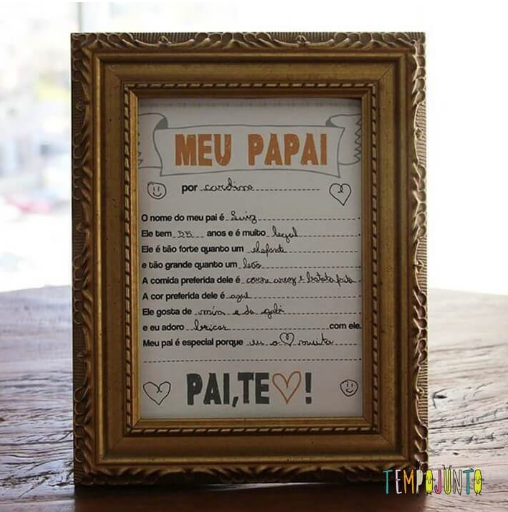 MEU PAPAI
por carolina
O nome do meu pai é Luiz
Ele tem anos e é muito legal
Ele é tão forte quanto um elefante
e tão grande quanto um leão
A comida preferida dele é carne arroz e batata frita
A cor preferida dele é azul
Ele gosta de mim e da gabi
e eu adoro brincar com ele.
Meu pai é especial porque eu o ♡ muito
PAI, TE ♡!
TEMPOJUNTO